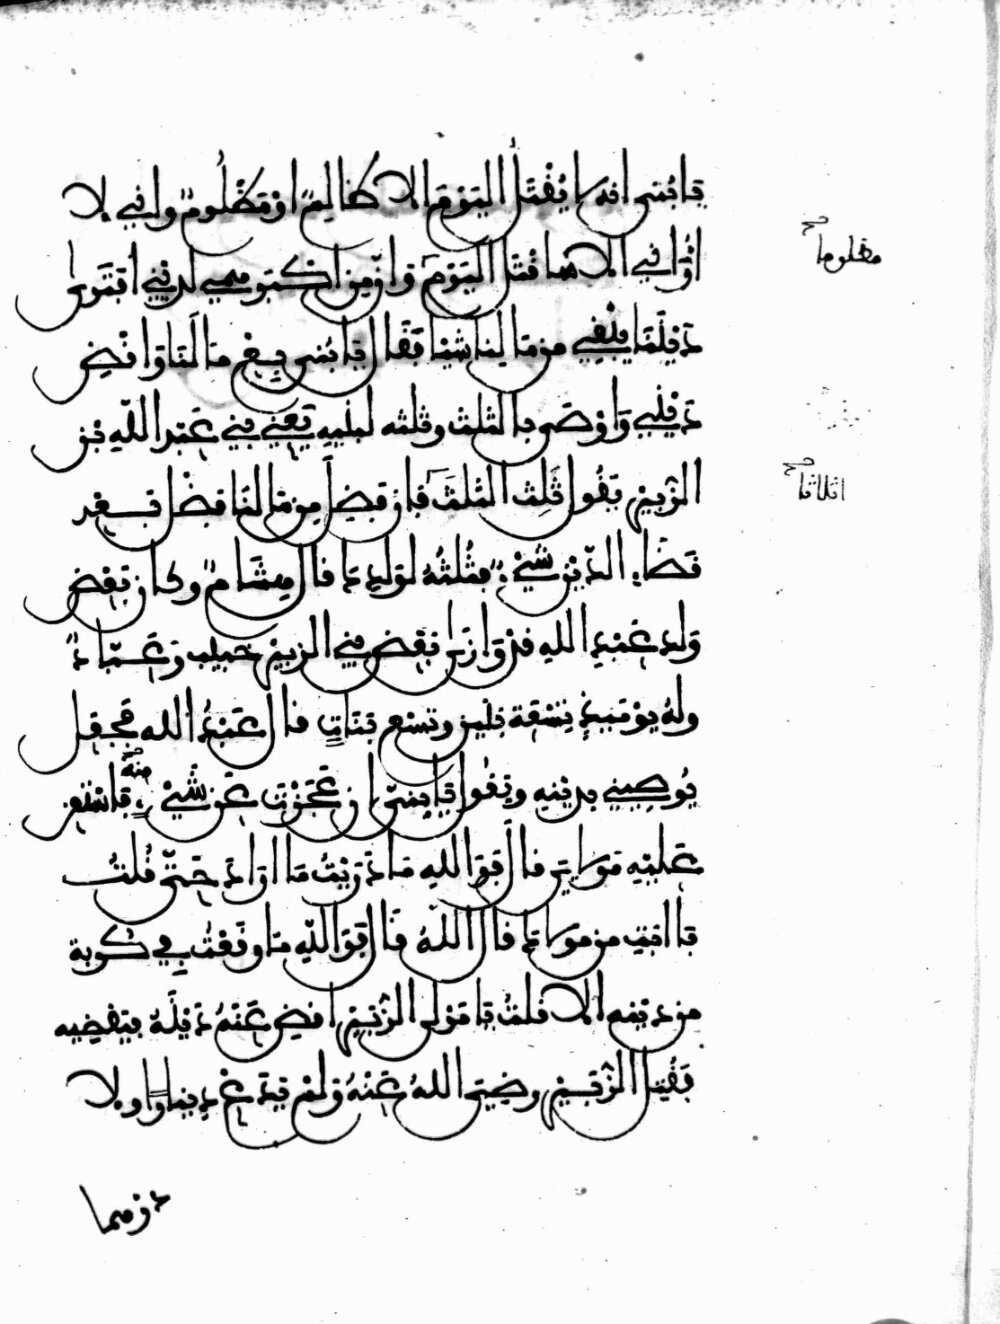 يا بني انه لا يقتل اليوم الا ظالم او مظلوم واني لا
أراني الا سأقتل اليوم وان من اكبر همي لديني افترى
ديننا يبقي من مالنا شيا فقال يا بني بع ما لنا واقض
ديني وأوصى بالثلث وثلثه لبنيه يعني بني عبد الله بن
الزبير يقول ثلث الثلث فإن فضل من مالنا فضل بعد
قضاء الدين شيء فثلثه لولدك قال هشام وكان بعض
ولد عبد الله قد وازى بعض بني الزبير خبيب وعباد
وله يومئذ تسعة بنين وتسع بنات قال عبد الله فجعل
يوصيني بدينه ويقول يا بني إن عجزت عن شيء منه فاستعن
عليه مولاي قال فوالله ما دريت ما أراد حتى قلت
يا ابت من مولاك قال الله قال فوالله ما وقعت في كربة
من دينه الا قلت يا مولى الزبير اقض عنه دينه فيقضيه
فقتل الزبير رضي الله عنه ولم يدع دينارا ولا
درهما
مظلوما صح
اثلاثا صح